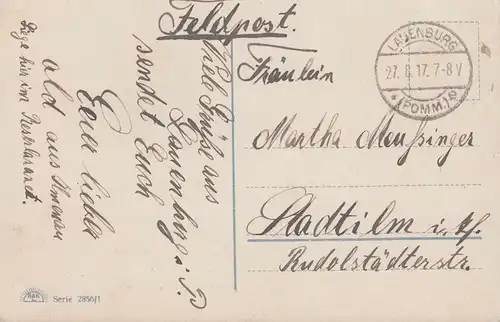 Feldpost.
Viele Grüße aus
Lauenburg i. P.
sendet Euch
Euer lieber
ald aus Ilmenau
Liege hier im Reservelazaret.
LAUENBURG
27.6.17. 7-8 V
* (POMM.) e
Fräulein
Martha Meußinger
Stadtilm i. Th.
Rudolstädterstr.
Serie 2856/1